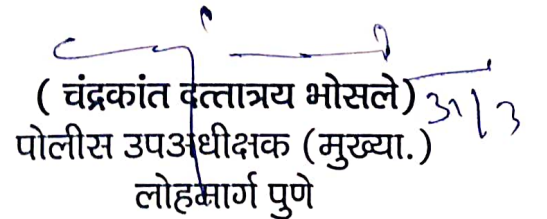 ( चंद्रकांत दत्तात्रय भोसले)
पोलीस उपअधीक्षक (मुख्या.)
लोहमार्ग पुणे